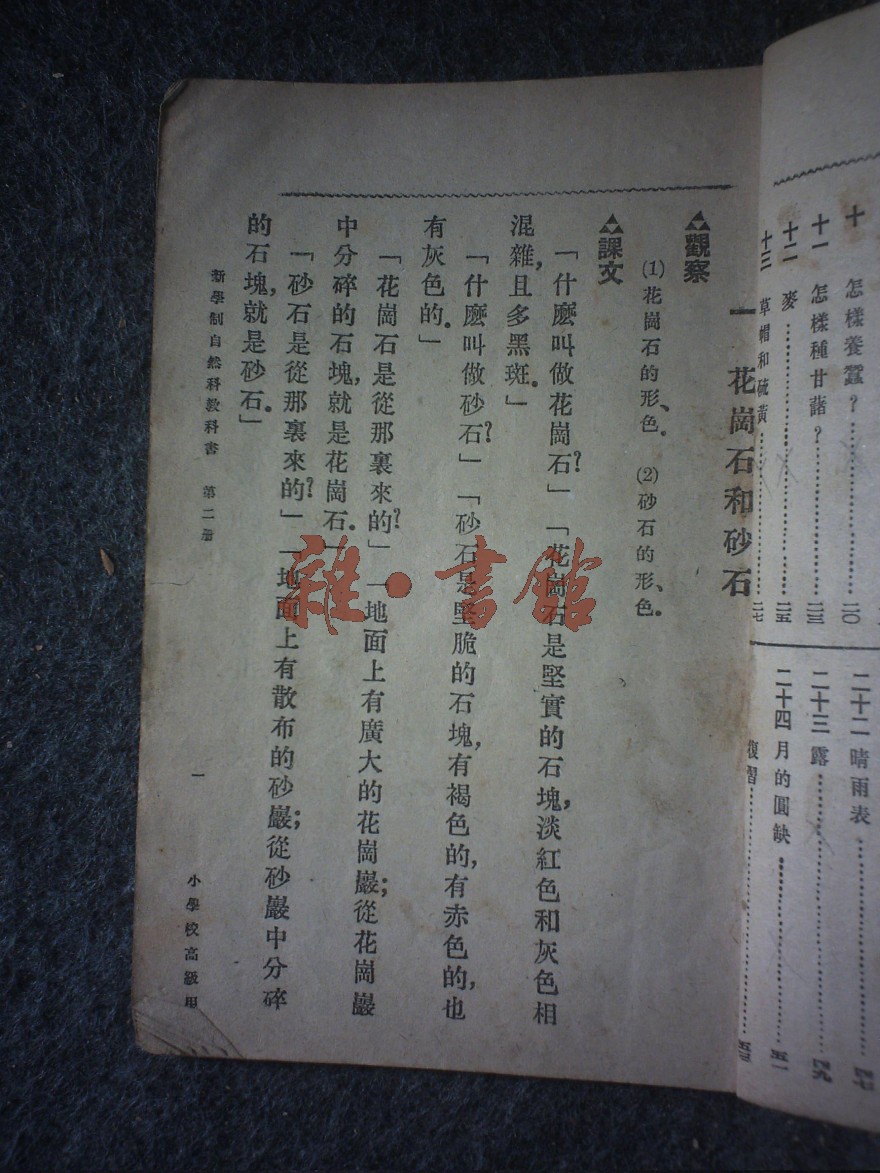 十　怎樣養蠶？……二〇
十一　怎樣種甘蔗？……二三
十二　麥……二五
十三　草帽和硫黃……二七
二十二　晴雨表……
二十三　露……四九
二十四　月的圓缺……五一
復習……五三
一　花崗石和砂石
觀察
(1)花崗石的形、色。　(2)砂石的形、色。
課文
「什麼叫做花崗石？」「花崗石是堅實的石塊，淡紅色和灰色相
混雜，且多黑斑。」
「什麼叫做砂石？」「砂石是堅脆的石塊，有褐色的，有赤色的，也
有灰色的。」
「花崗石是從那裏來的？」「地面上有廣大的花崗巖；從花崗巖
中分碎的石塊，就是花崗石。」
「砂石是從那裏來的？」「地面上有散布的砂巖；從砂巖中分碎
的石塊，就是砂石。」
新學制自然科教科書　第二册　一　小學校高級用
雜·書館